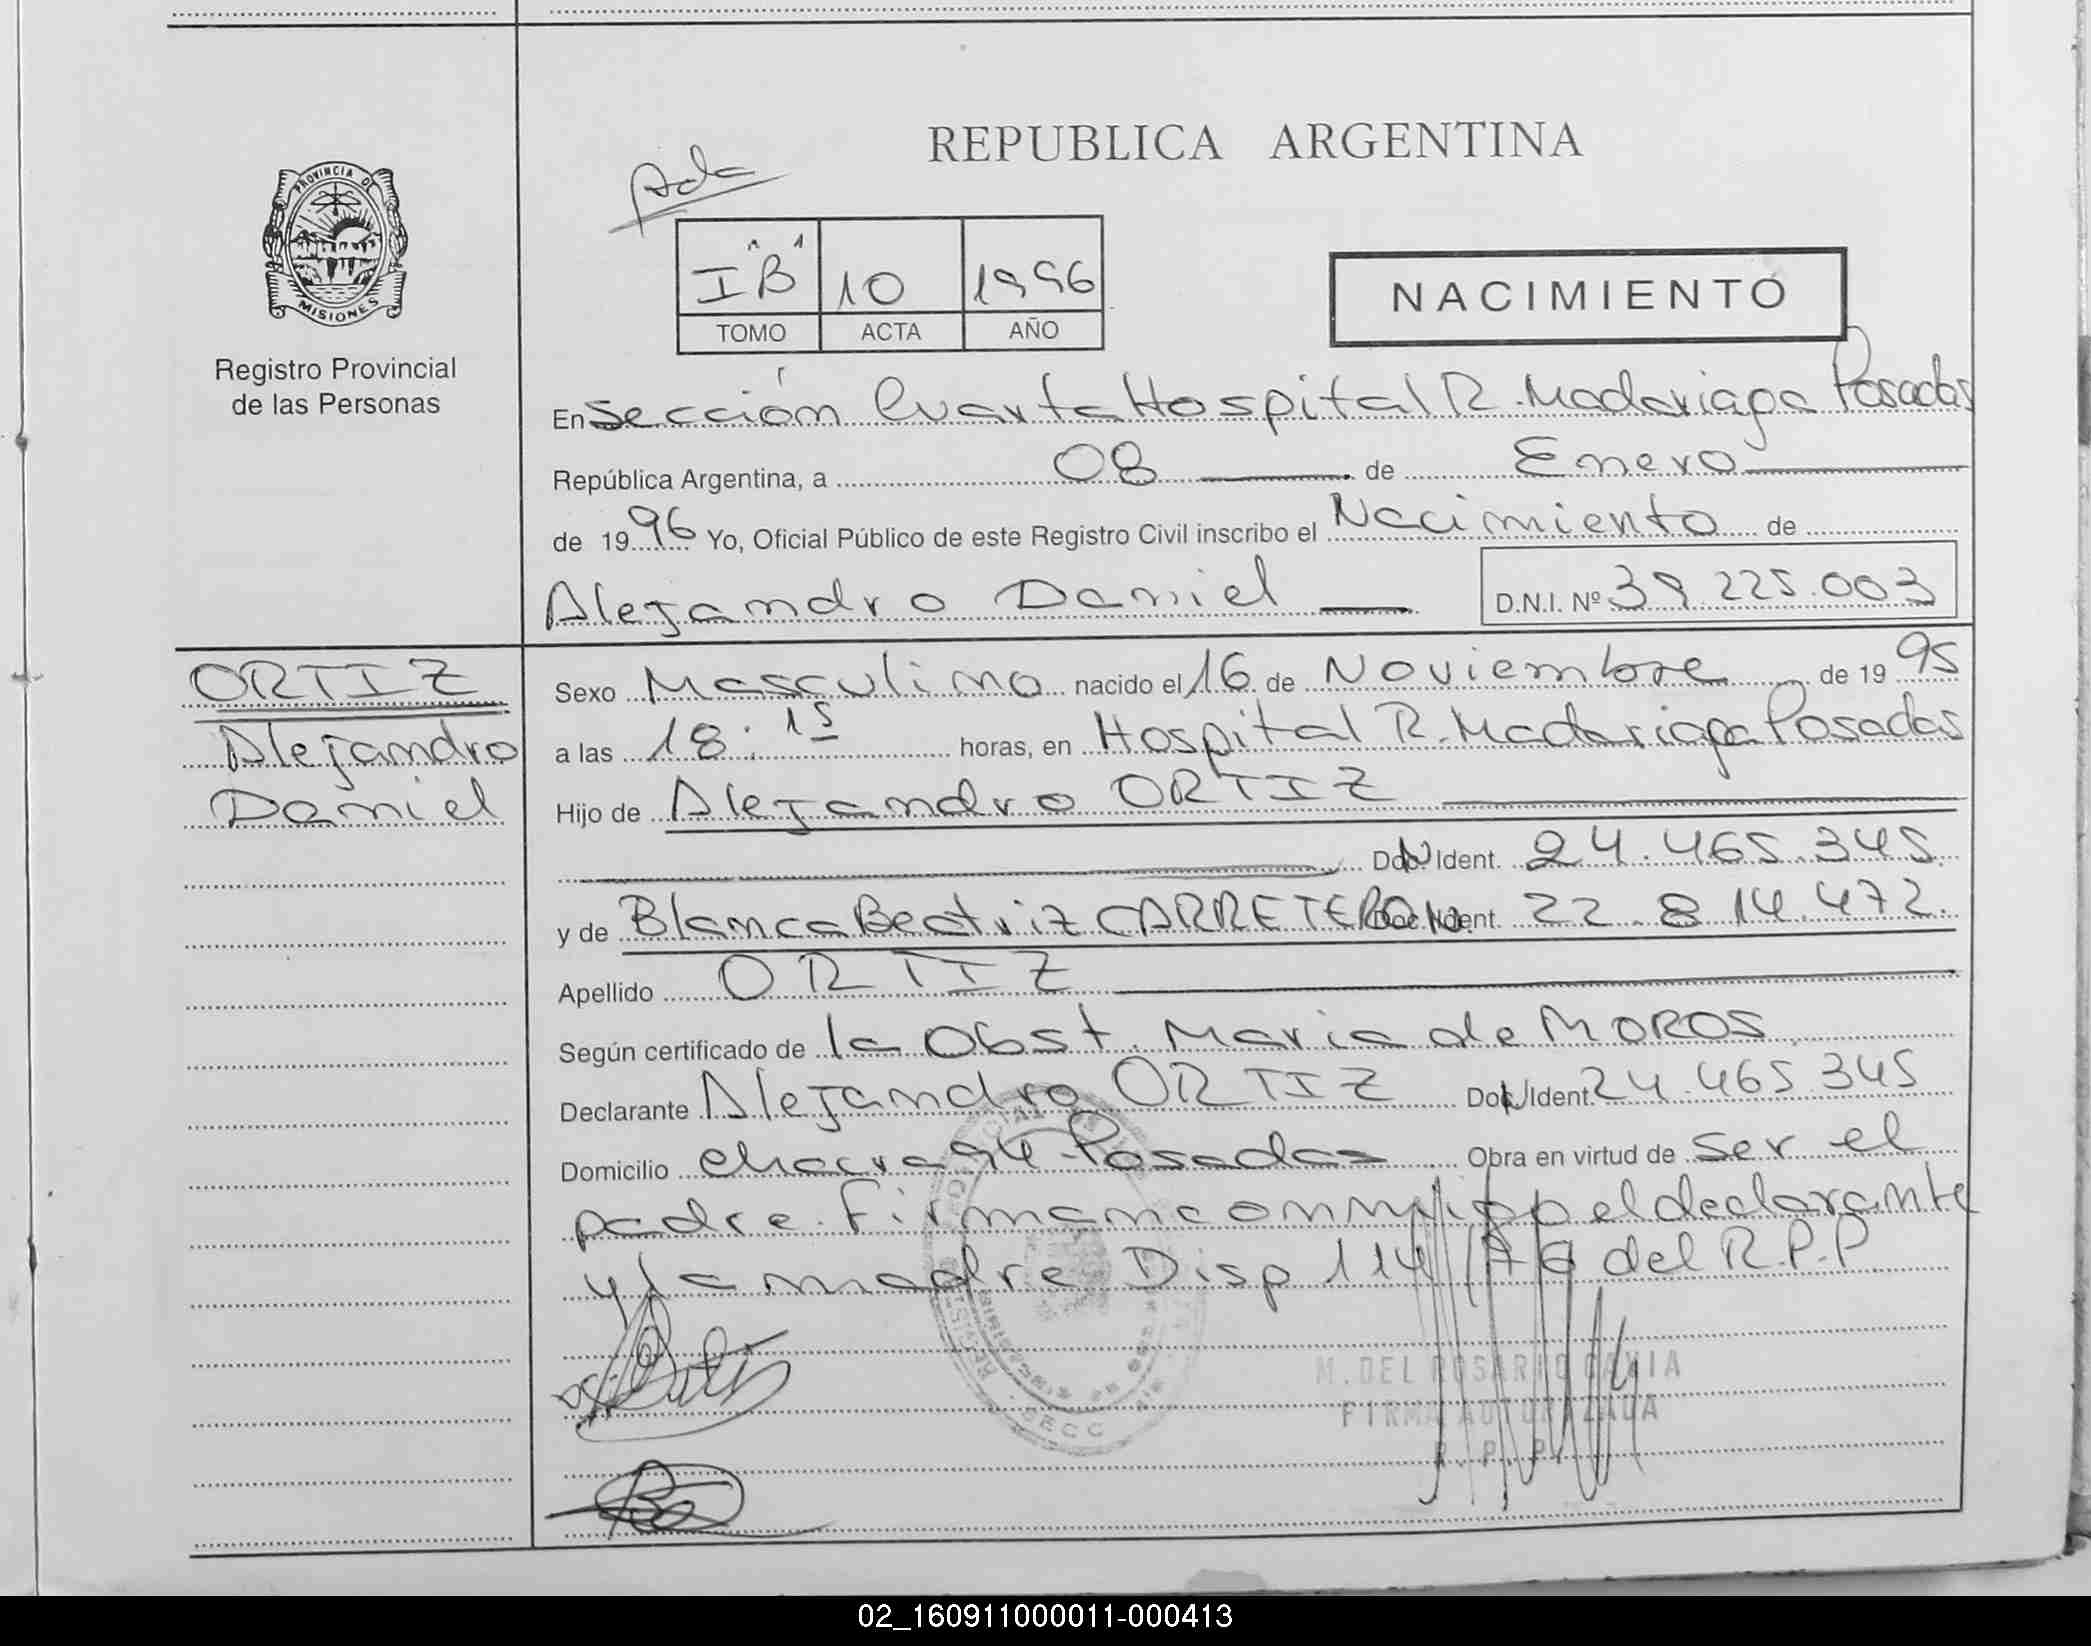 REPUBLICA ARGENTINA
PROVINCIA DE
MISIONES
Registro Provincial
de las Personas
I "B" 10 1996
TOMO ACTA AÑO
NACIMIENTO
En Sección Cuarta Hospital R. Madariaga Posadas
República Argentina, a 08 de Enero
de 1996 Yo, Oficial Público de este Registro Civil inscribo el Nacimiento de
Alejandro Daniel D.N.I. Nº 39.225.003
ORTIZ
Alejandro
Daniel
Sexo Masculino nacido el 16 de Noviembre de 1995
a las 18:15 horas, en Hospital R. Madariaga Posadas
Hijo de Alejandro ORTIZ
Doc. Ident. 24.465.345
y de Blanca Beatriz CARRETERO Doc. Ident. 22.814.472.
Apellido ORTIZ
Según certificado de la Obst. Maria de MOROS
Declarante Alejandro ORTIZ Doc. Ident. 24.465.345
Domicilio chacra 94 Posadas Obra en virtud de ser el
padre. Firman el declarante
y la madre Disp 114 del R.P.P.
SECC
M. DEL ROSARIO
FIRMA AUTORIZADA
R.P.P.
02_160911000011-000413